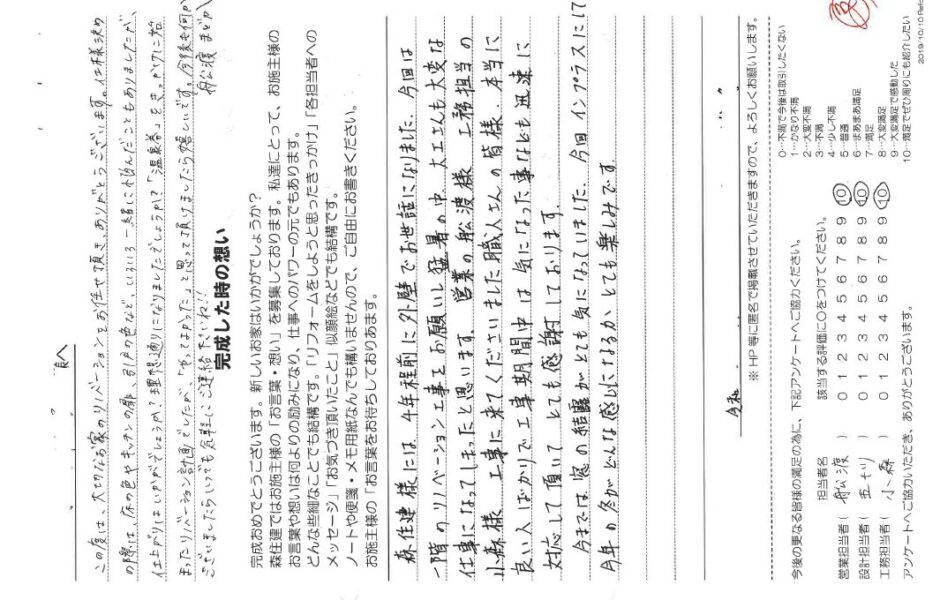 様へ
この度は、大切なお家のリノベーションをお任せ頂き、ありがとうございます。仕様決め
の際は、床の色やキッチンの扉、引戸の色など、いろいろ一緒に悩んだこともありましたが、
仕上がりはいかがでしょうか?理想通りになりましたでしょうか?「温熱巻」をきっかけに始
まったリノベーション計画でしたが、「やってよかった」と思って頂けましたら嬉しいです。今後も何か
ございましたらいつでも気軽にご連絡くださいね!!
舩渡 まどか
完成した時の想い
完成おめでとうございます。新しいお家はいかがでしょうか?
森住建ではお施主様の「お言葉・想い」を募集しております。私達にとって、お施主様の
お言葉や想いは何よりの励みになり、仕事へのパワーの元でもあります。
どんな些細なことでも結構です。「リフォームをしようと思ったきっかけ」「各担当者への
メッセージ」「お気づき頂いたこと」似顔絵などでも結構です。
ノートや便箋・メモ用紙なんでも構いませんので、ご自由にお書きください。
お施主様の「お言葉をお待ちしておりあます。
森住建様には、4年程前に外壁でお世話になりました。今回は
一階のリノベーション工事をお願いし猛暑の中、大工さんも大変な
仕事になってしまったと思います。営業の舩渡様、工務担当の
小森様、工事に来てくださいました職人さんの皆様、本当に
良い人ばかりで工事期間中は気になった事なども迅速に
対応して頂いて とても感謝しております。
今までは窓の結露がとても気になっていました。今回インプラスにして
今年の冬がどんな感じになるか、とても楽しみです。
令和
※ HP 等に匿名で掲載させていただきますので、よろしくお願いします。
今後の更なる皆様の満足の為に、下記アンケートへご協力ください。
担当者名 該当する評価に○をつけてください。
営業担当者( 舩渡 ) 0 1 2 3 4 5 6 7 8 9 10
設計担当者( 五十川 ) 0 1 2 3 4 5 6 7 8 9 10
工務担当者( 小森 ) 0 1 2 3 4 5 6 7 8 9 10
アンケートへご協力いただき、ありがとうございます。
0…不満で今後は取引したくない
1…かなり不満
2…大変不満
3…不満
4…少し不満
5…普通
6…まあまあ満足
7…満足
8…大変満足
9…大変満足で感動した
10…満足でぜひ周りにも紹介したい
2019/10/10